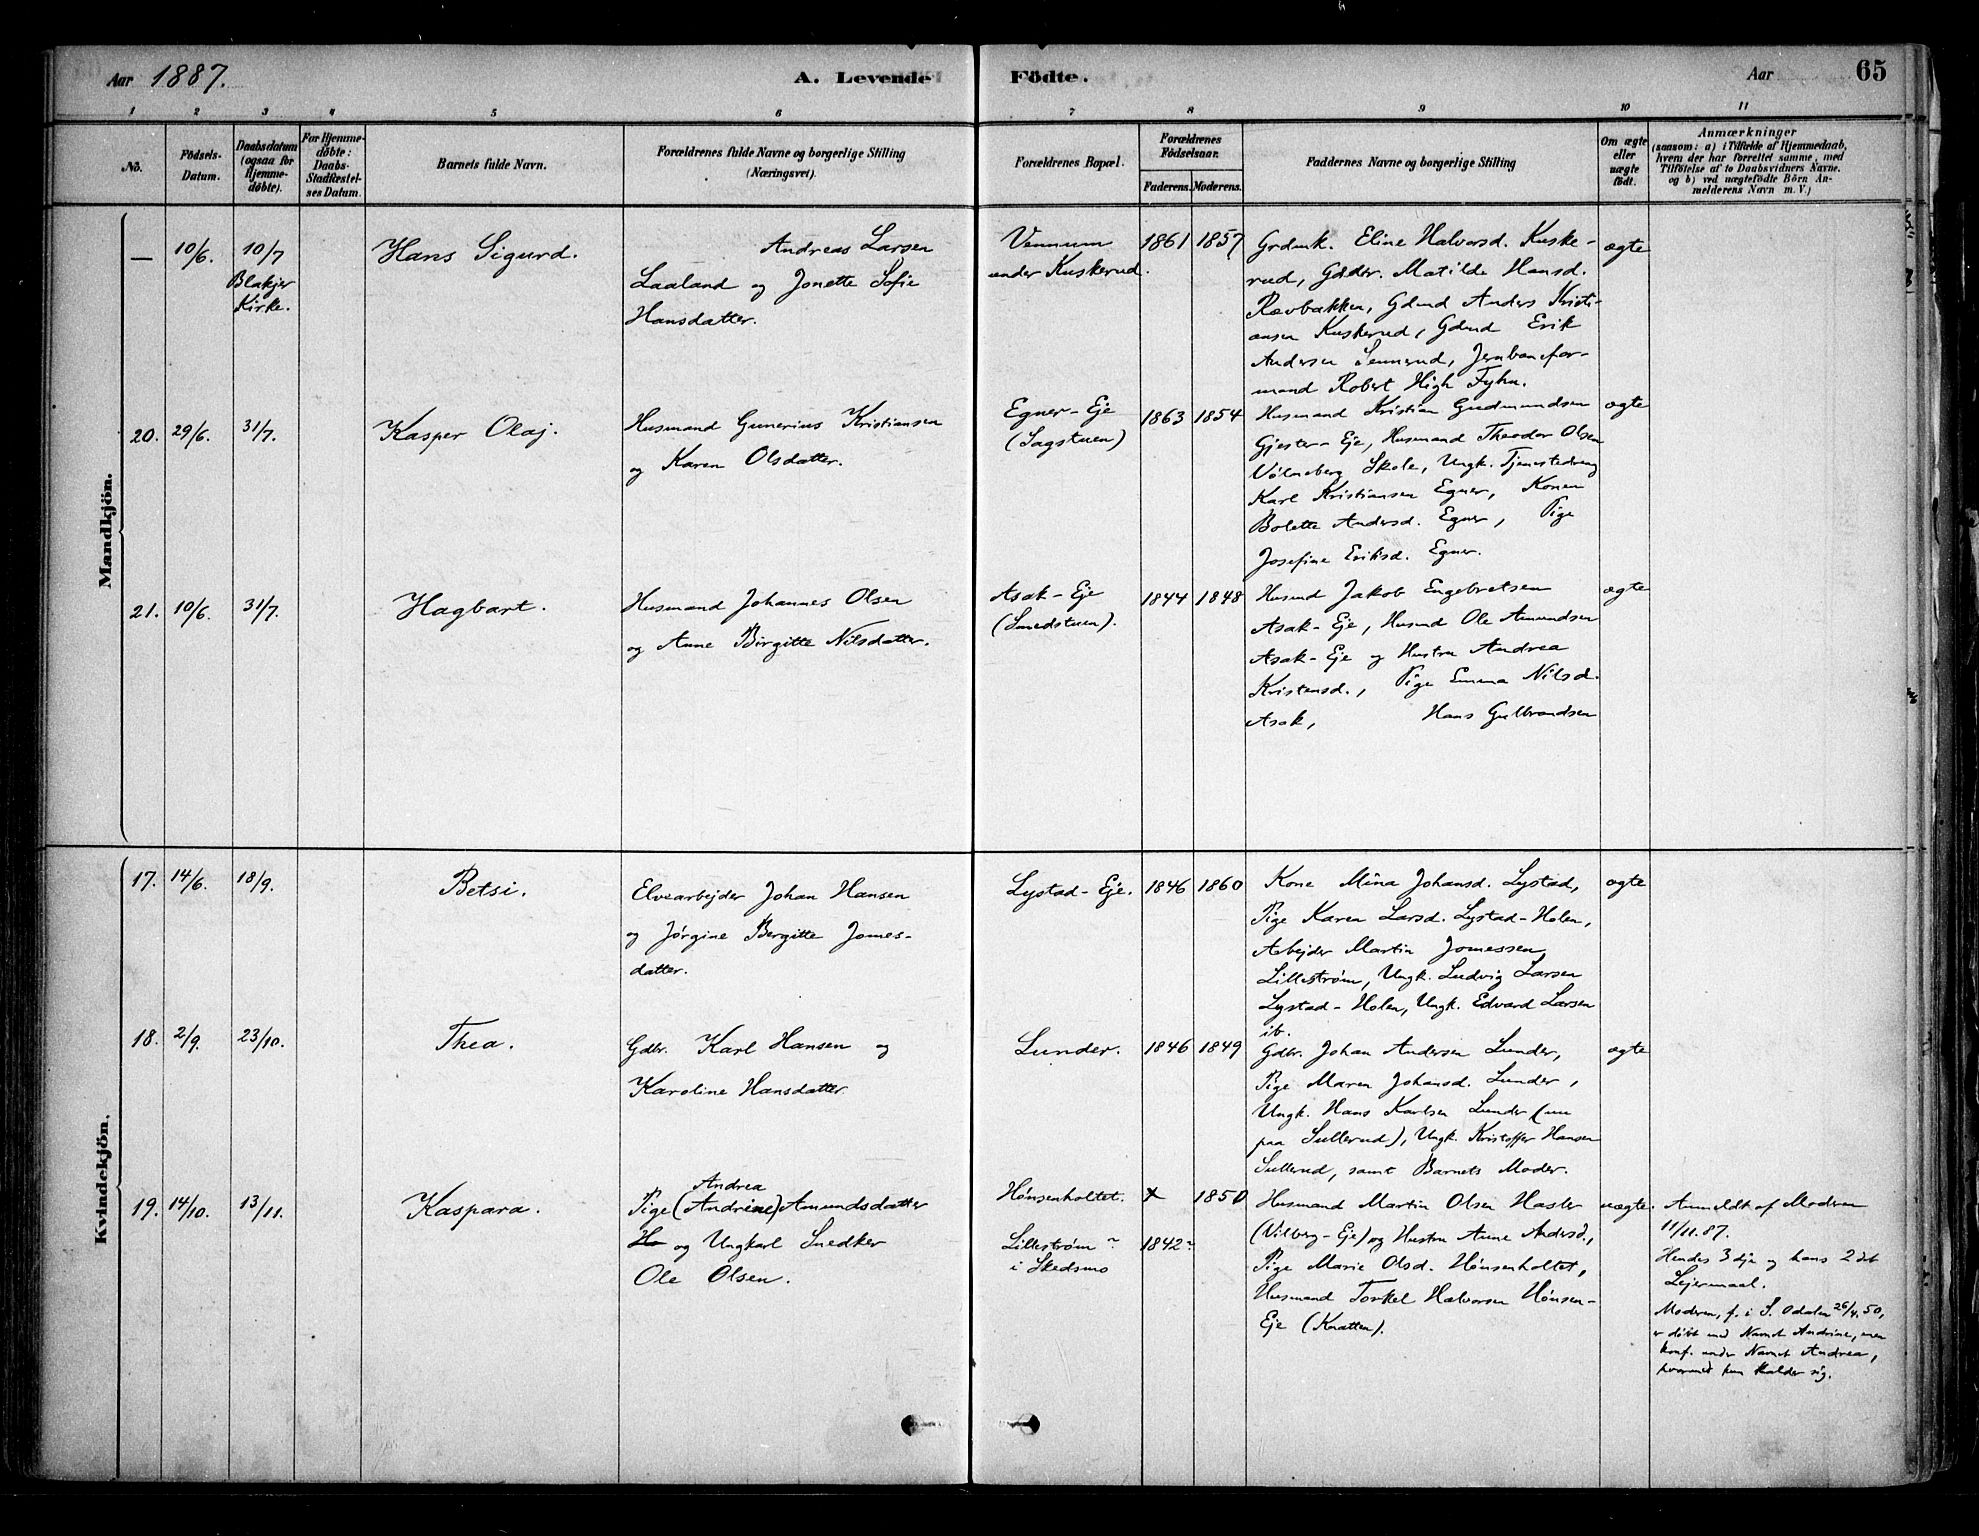 Aar 1887.
A. Levende Födte.
Aar
65
1 2 3 4 5 6 7 8 9 10 11
No.
Födsels-Datum.
Daabsdatum (ogsaa for Hjemme-döbte).
For Hjemme-döbte: Daabs-Stadfæstelses Datum.
Barnets fulde Navn.
Forældrenes fulde Navne og borgerlige Stilling (Næringsvei).
Forældrenes Bopæl.
Forældrenes Födselsaar.
Faderens. Moderens.
Faddernes Navne og borgerlige Stilling
Om ægte eller uægte födt.
Anmærkninger
(saasom: a) i Tilfælde af Hjemmedaab,
hvem der har forrettet samme, med
Tilföielse af to Daabsvidners Navne.
og b) ved uægtefödte Börn An-
melderens Navn m. V.)
Mandkjön.
— 10/6. 10/7
Blakjer
Kirke.
Hans Sigurd.
Andreas Larsen
Laaland og Jonette Sofie
Hansdatter.
Vennum
under Kuskerud.
1861 1857
Grdmk. Eline Halvorsd. Kuske-
rud, Gdder. Matilde Hansd.
Rævbakken, Gdmd Anders Kristi-
ansen Kuskerud, Gdmd Erik
Andersen Sennerud, Jernbanefor-
mand Robert High Fyhn.
ægte
20. 29/6. 31/7.
Kasper Olaj.
Husmand Gunerius Kristiansen
og Karen Olsdatter.
Egner-Eje
(Sagstuen)
1863 1854
Husmand Kristian Gudmundsen
Gjester-Eje, Husmand Theodor Olsen
Vølneberg Skole, Ungk. Tjenestedreng
Karl Kristiansen Egner, Konen
Bolette Andersd. Egner, Pige
Josefine Eriksd. Egner.
ægte
21. 10/6. 31/7.
Hagbart.
Husmand Johannes Olsen
og Anne Birgitte Nilsdatter.
Asak-Eje
(Smedstuen).
1844 1848
Husmd Jakob Engebretsen
Asak-Eje, Husmd Ole Amundsen
Asak-Eje og Hustru Andrea
Kristensd., Pige Emma Nilsd.
Asak, Hans Gulbrandsen
ægte
Kvindekjön.
17. 14/6. 18/9.
Betsi.
Elvearbejder Johan Hansen
og Jørgine Bergitte Jomes-
datter.
Lystad-Eje.
1846 1860
Kone Mina Johansd. Lystad,
Pige Karen Larsd. Lystad-Holen,
Arbejder Martin Jomessen
Lillestrøm, Ungk. Ludvig Larsen
Lystad-Holen, Ungk. Edvard Larsen
ib.
ægte
18. 2/9. 23/10.
Thea.
Gdbr. Karl Hansen og
Karoline Hansdatter
Lunder.
1846 1849
Gdbr. Johan Andersen Lunder,
Pige Maren Johansd. Lunder,
Ungk. Hans Karlsen Lunder (nu
paa Sullerud), Ungk. Kristoffer Hansen
Sullerud, samt Barnets Moder.
ægte
19. 14/10. 13/11.
Kaspara.
Andrea
Pige (Andrine) Amundsdatter
Ho og Ungkarl Snedker
Ole Olsen.
Hønsenholtet.
Lillestrøm
i Skedsmo
+ 1850
1842
Husmand Martin Olsen Hasler
(Vilberg-Eje) og Hustru Anne Andersd.,
Pige Marie Olsd. Hønsenholtet,
Husmand Torkel Halvorsen Hønsen-
Eje (Knatten).
uægte.
Anmeldt af Moderen
11/11.87.
Hendes 3dje og hans 2det
Lejermaal.
Moderen, f. i S. Odalen 26/4.50,
er døbt med Navnet Andrine, men
konf. under Navnet Andrea,
hvormed hun kalder sig.